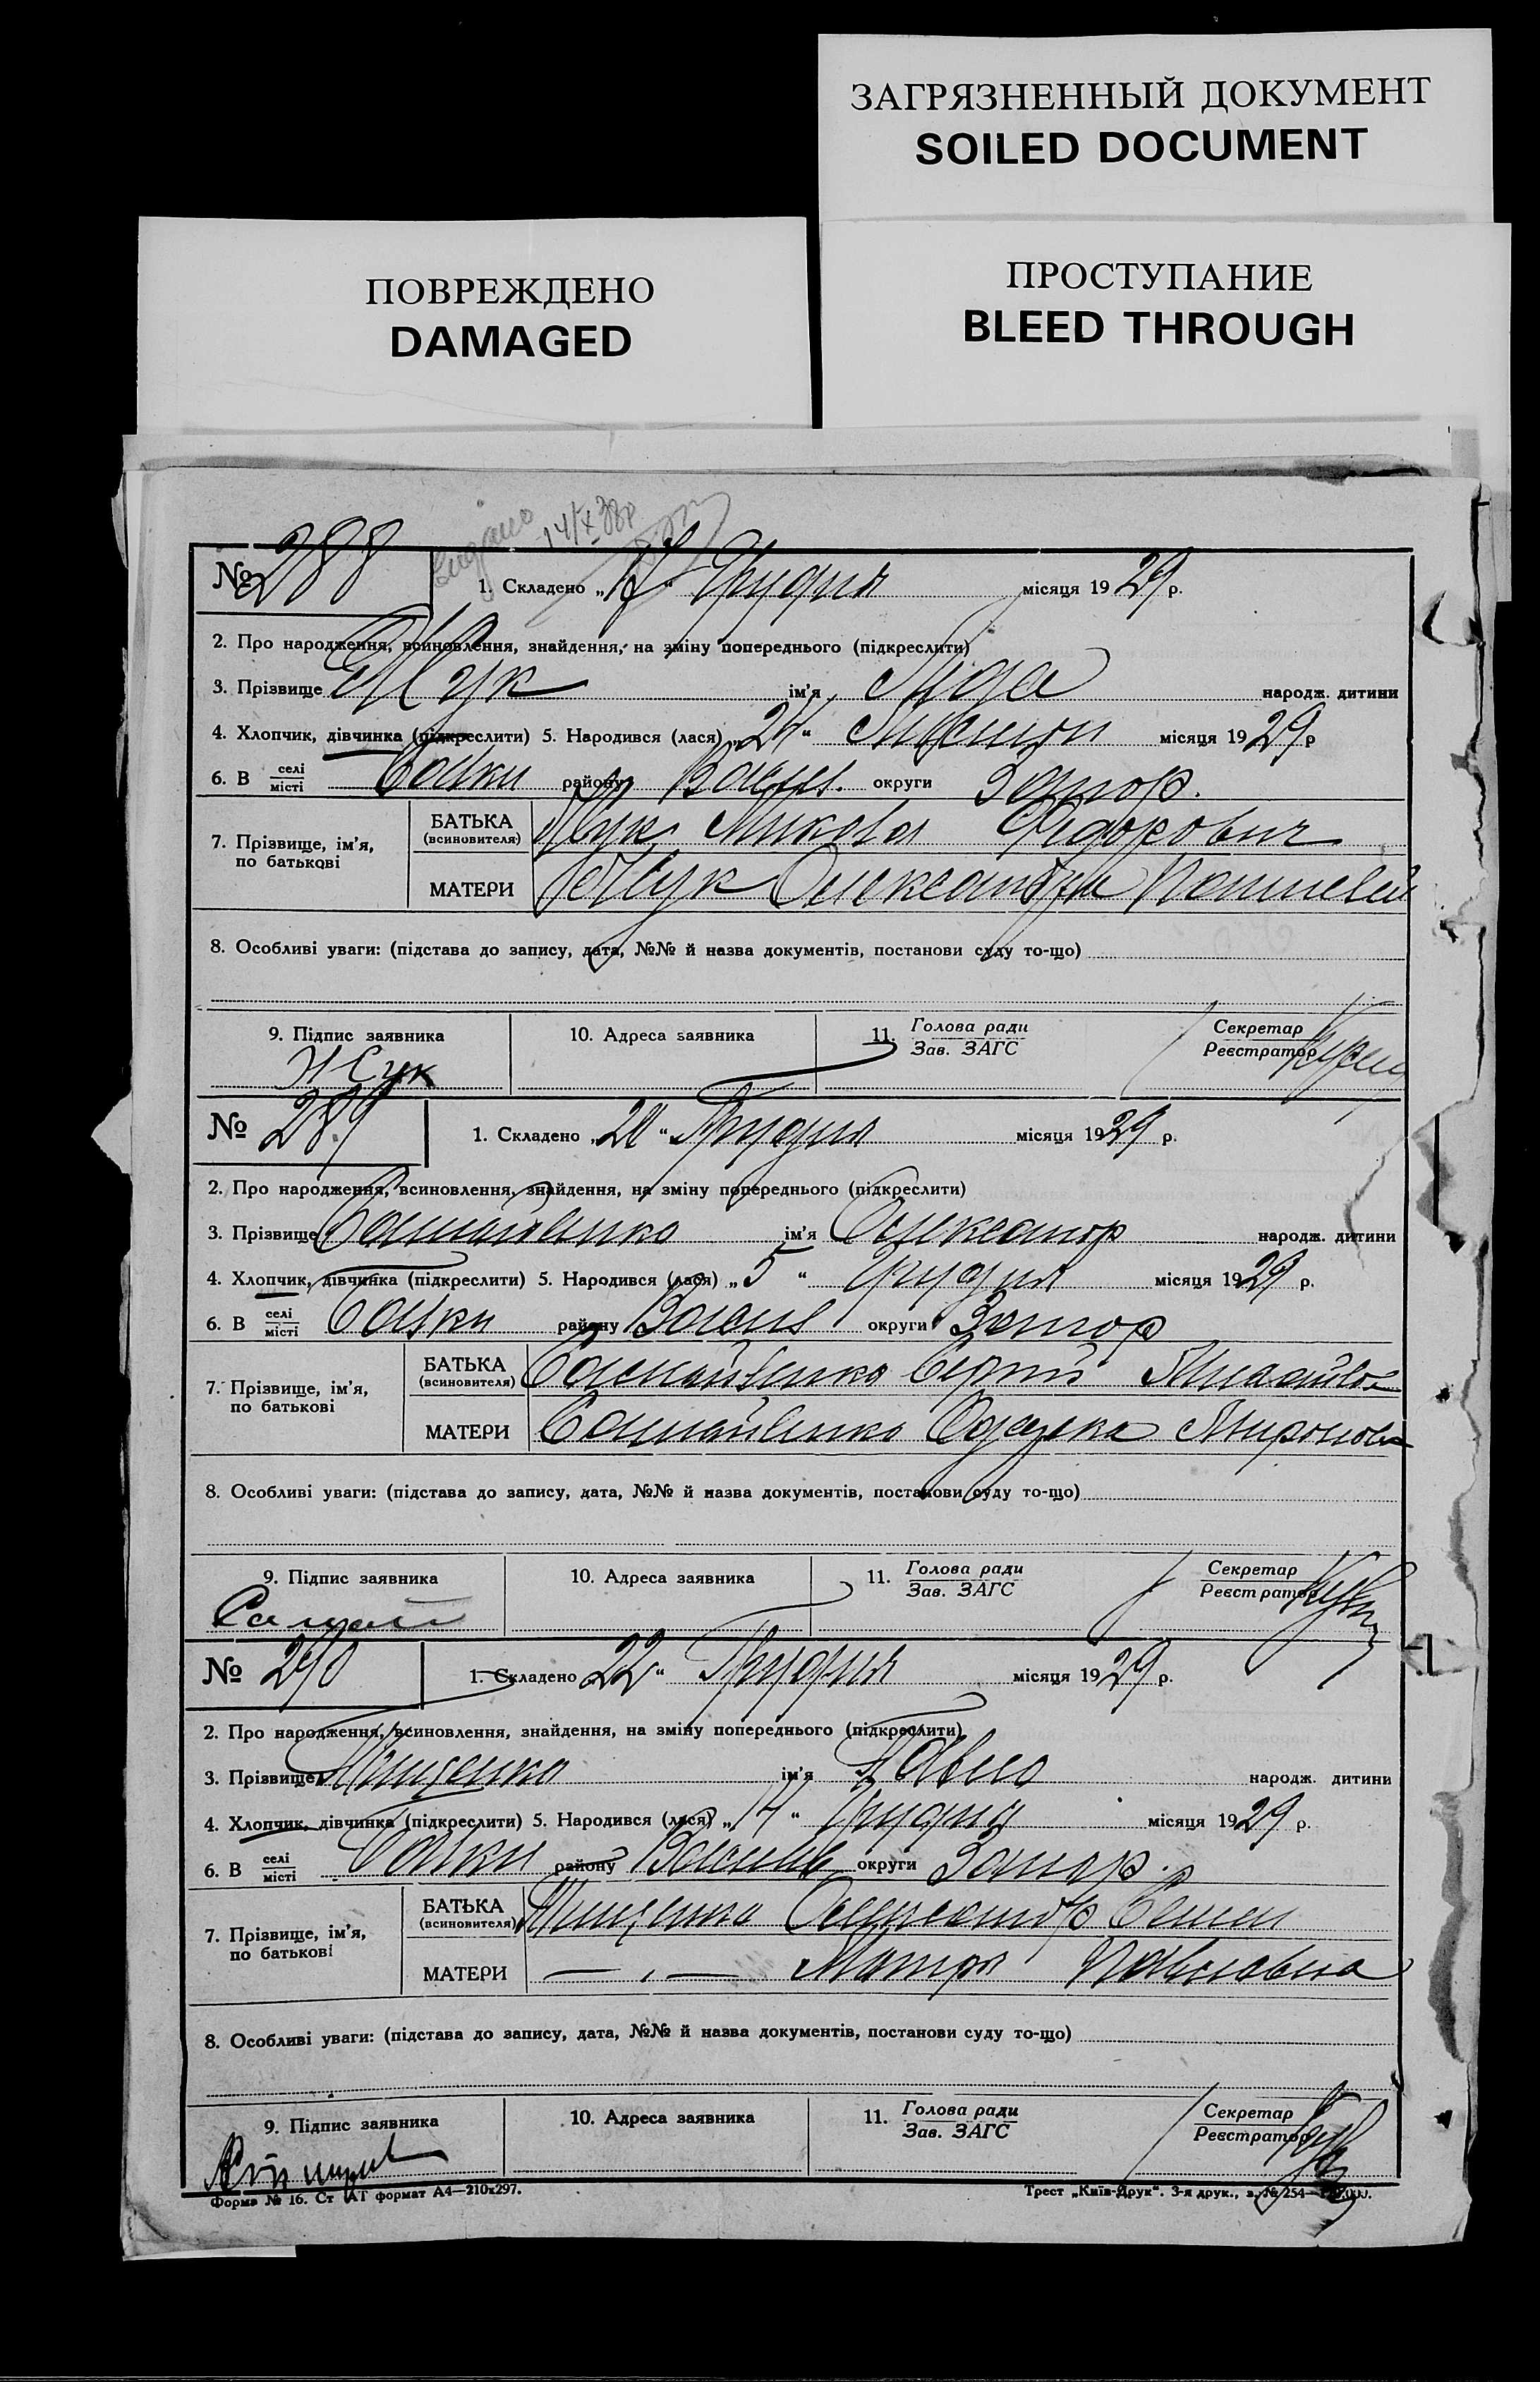 ЗАГРЯЗНЕННЫЙ ДОКУМЕНТ
SOILED DOCUMENT
ПОВРЕЖДЕНО
DAMAGED
ПРОСТУПАНИЕ
BLEED THROUGH
№ 288
1. Складено „17“ Грудня місяця 1929 р.
2. Про народження, всиновлення, знайдення, на зміну попереднього (підкреслити)
3. Прізвище Жук ім'я Ліда народж. дитини
4. Хлопчик, дівчинка (підкреслити) 5. Народився (лася) „24“ Листоп місяця 1929 р
6. В селі/місті Балки району Васил. округи Запор.
7. Прізвище, ім'я, по батькові
БАТЬКА (всиновителя) Жук Микола Федорович
МАТЕРИ Жук Олександра
8. Особливі уваги: (підстава до запису, дата, №№ й назва документів, постанови суду то-що)
9. Підпис заявника 10. Адреса заявника 11. Голова ради/Зав. ЗАГС Секретар/Реєстратор
Жук
№ 289
1. Складено „20“ Грудня місяця 1929 р.
2. Про народження, всиновлення, знайдення, на зміну попереднього (підкреслити)
3. Прізвище ім'я Олександр народж. дитини
4. Хлопчик, дівчинка (підкреслити) 5. Народився (лася) „5“ Грудня місяця 1929 р.
6. В селі/місті Балки району Васил округи Запор
7. Прізвище, ім'я, по батькові
БАТЬКА (всиновителя) Сергій
МАТЕРИ Миронов
8. Особливі уваги: (підстава до запису, дата, №№ й назва документів, постанови суду то-що)
9. Підпис заявника 10. Адреса заявника 11. Голова ради/Зав. ЗАГС Секретар/Реєстратор
№ 290
1. Складено 22“ Грудня місяця 1929 р.
2. Про народження, всиновлення, знайдення, на зміну попереднього (підкреслити)
3. Прізвище Тищенко ім'я Павло народж. дитини
4. Хлопчик, дівчинка (підкреслити) 5. Народився (лася) „14“ Грудня місяця 1929 р.
6. В селі/місті Балки району Васил округи Запор.
7. Прізвище, ім'я, по батькові
БАТЬКА (всиновителя) Тищенко Олександр Семен
МАТЕРИ —„— Мотря Павловна
8. Особливі уваги: (підстава до запису, дата, №№ й назва документів, постанови суду то-що)
9. Підпис заявника 10. Адреса заявника 11. Голова ради/Зав. ЗАГС Секретар/Реєстратор
Форма № 16. Ст АТ формат А4—210х297. Трест „Київ-Друк“. 3-я друк., з. № 254